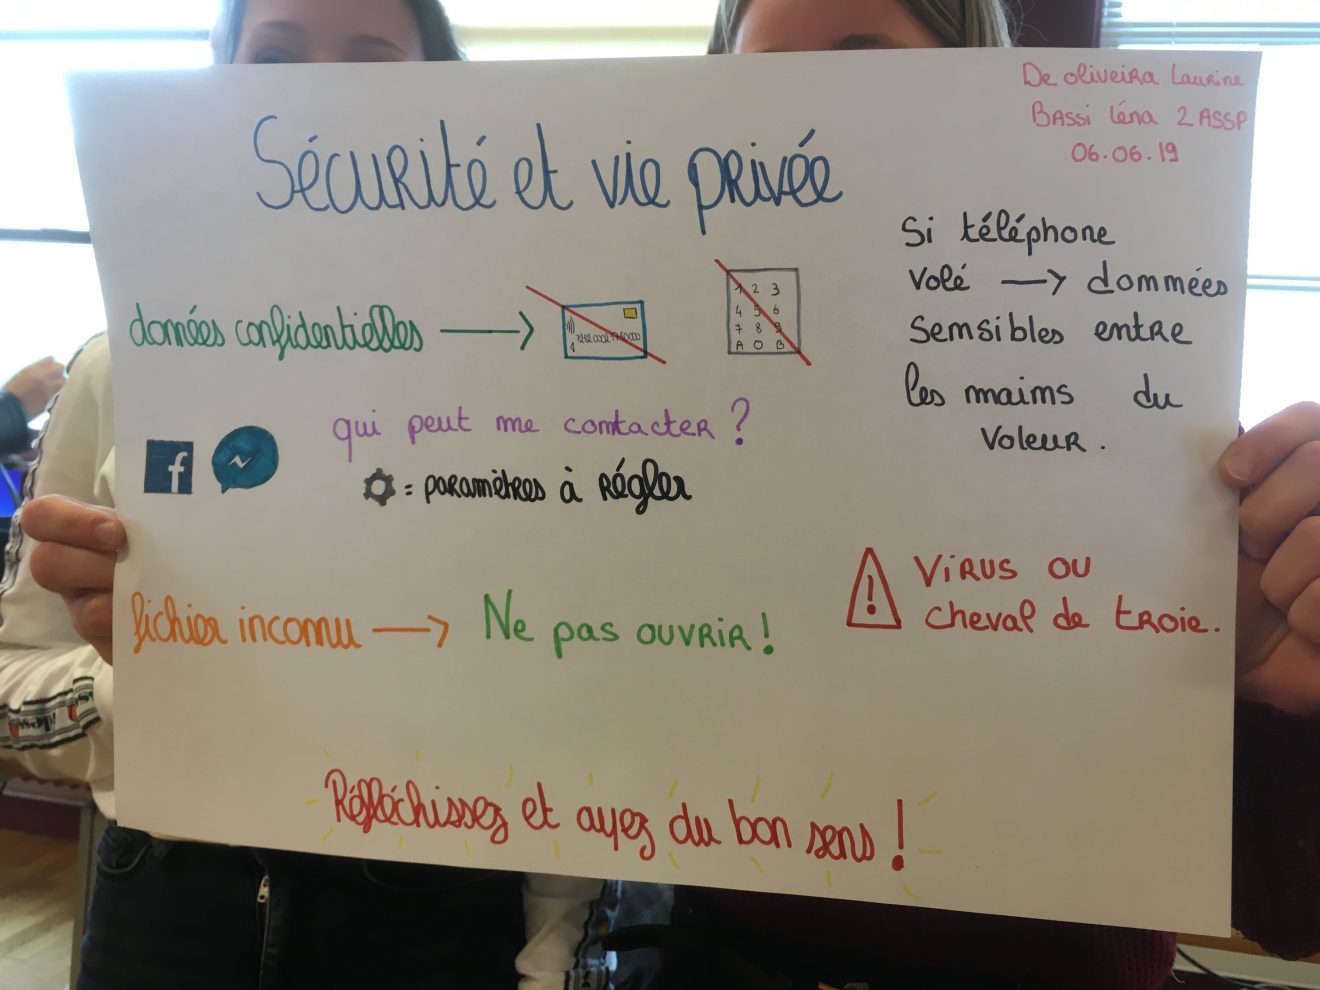 De oliveira Laurine
Bassi Léna 2 ASSP
06.06.19
Sécurité et vie privée
Si téléphone
volé → données
sensibles entre
les mains du
voleur.
données confidentielles →
1 2 3
4 5 6
7 8 9
A 0 B
qui peut me contacter ?
= paramètres à régler
f
fichier inconnu → Ne pas ouvrir !
! Virus ou
cheval de troie.
Réfléchissez et ayez du bon sens !